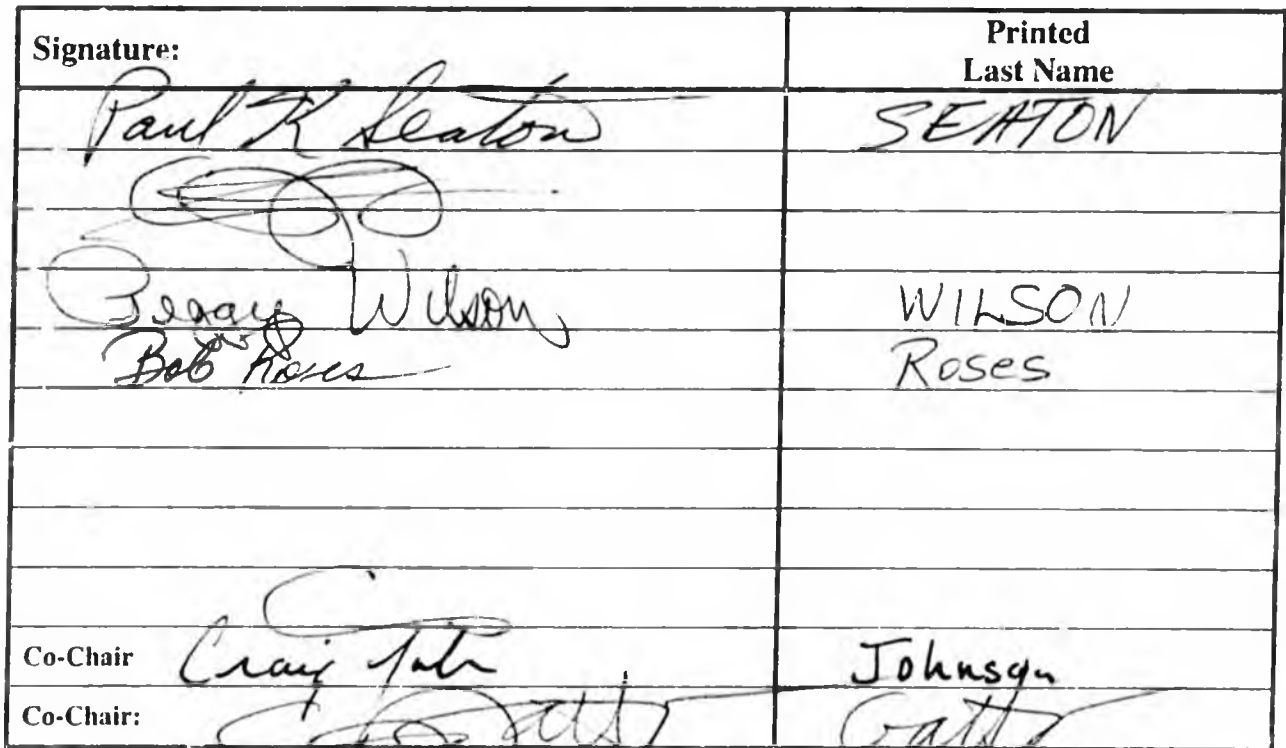 Signature: Printed Last Name
Paul K Seaton SEATON
Peggy Wilson WILSON
Bob Roses Roses
Co-Chair Craig Johnson
Co-Chair: Gatto